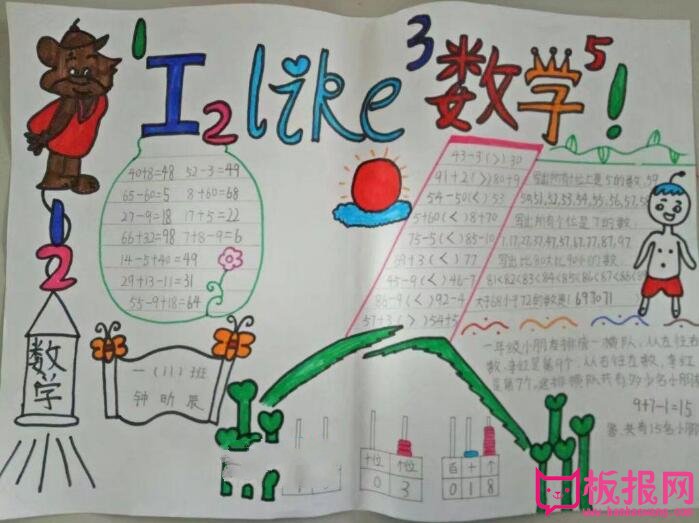 1 I 2 like 3 数学 5 !
40+8=48 52-3=49
65-60=5 8+60=68
27-9=18 17+5=22
66+32=98 7+8-9=6
14-5+40=49
29+13-11=31
55-9+18=64
43-3(>)30
91+2(>)80+9
54-50(<)53
5+60(<)8+70
75-5(<)85-10
69+3(<)77
45-9(<)46-7
86-9(<)92-4
57+3(>)54+5
写出所有十位上是5的数。59
50,51,52,53,54,55,56,57,58
写出所有个位是7的数。
7,17,27,37,47,57,67,77,87,97
写出比80大比90小的数。
81<82<83<84<85<86<87<88<89
大于68小于72的数是(69 70 71)
一年级小朋友排成一横队,从左往右
数,李红是第9个,从右往左数,李红
是第7个,这排横队共有多少名小朋友
9+7-1=15
答:共有15名小朋
1
2
数学
一(11)班
钟昕辰
十位 个位
0 3
百 十 个
0 1 8
板报网
www.banbaowang.com